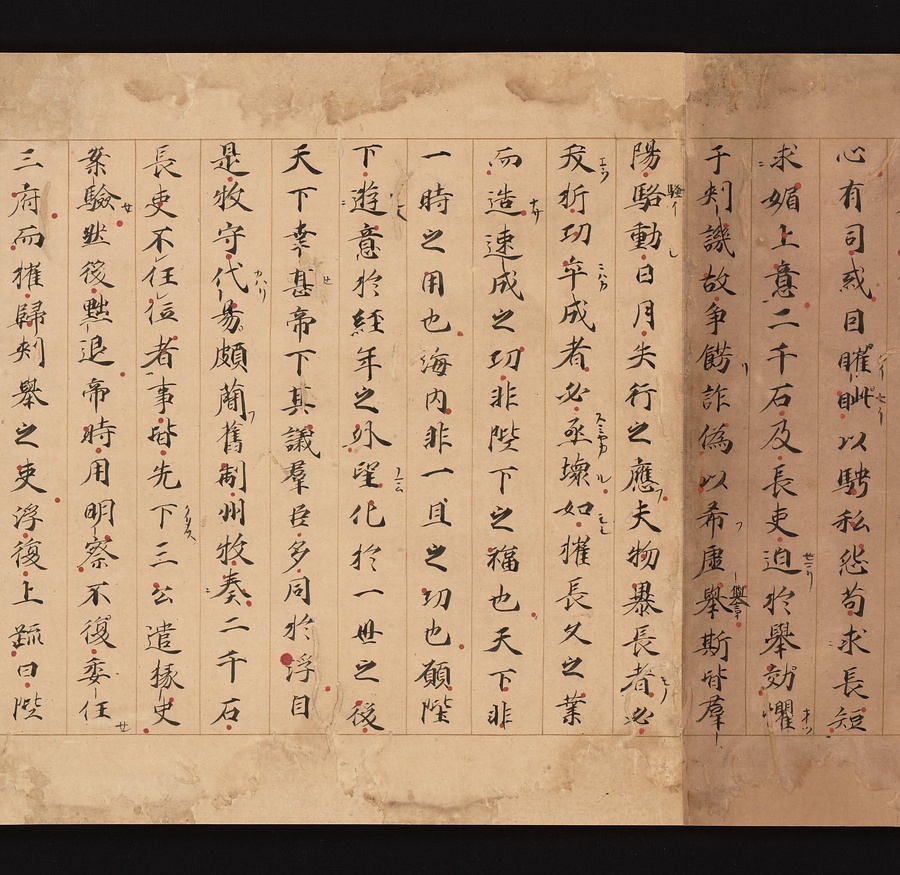 心有司或因睚眦以騁私怨苟求長短
求媚上意二千石及長吏迫於舉劾懼
于刾譏故争餝詐偽以希虚舉斯皆羣
陽騷動日月失行之應夫物暴長者必
夭折功卒成者必亟壞如摧長久之業
而造速成之功非陛下之福也天下非
一時之用也海内非一旦之功也願陛
下遊意於經年之外望化於一世之後
天下幸甚帝下其議羣臣多同於浮自
是牧守代易頗蕳舊制州牧奏二千石
長吏不任位者事皆先下三公遣掾史
案驗然後黜退帝時用明察不復委任
三府而權歸刾舉之吏浮復上疏曰陛